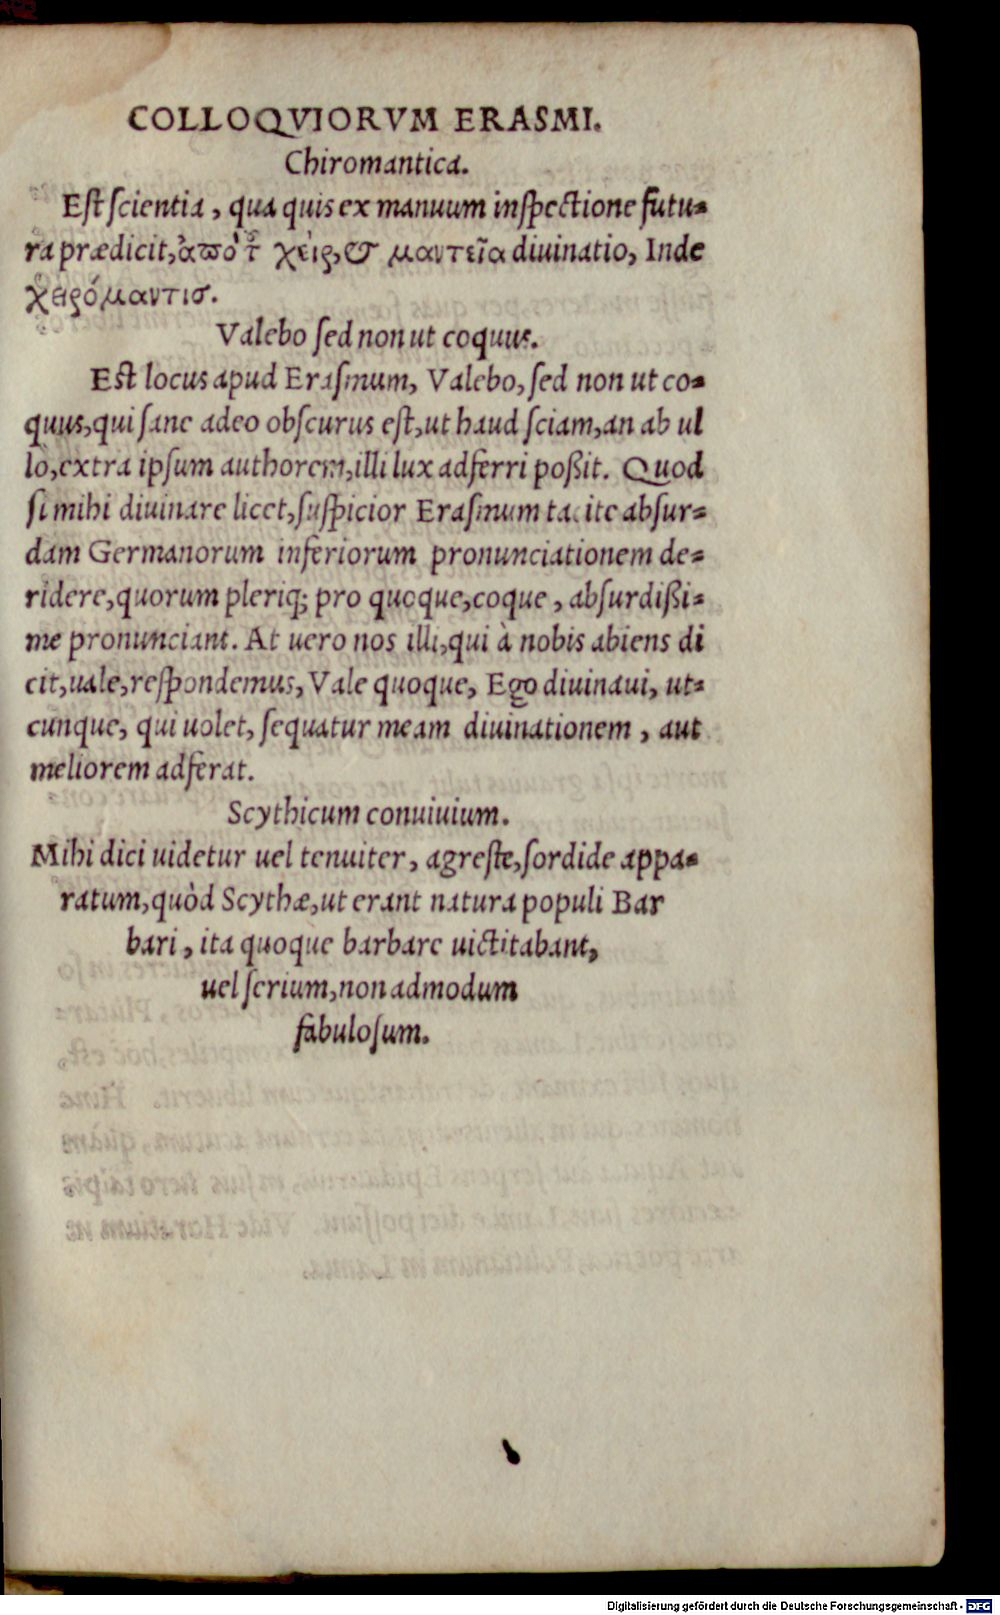 COLLOQVIORVM ERASMI.
Chiromantica.
Est scientia, qua quis ex manuum inspectione futu-
ra prædicit, ἀπὸ τ χεὶρ, & μαντεῖα diuinatio, Inde
χειρόμαντις.
Valebo sed non ut coquus.
Est locus apud Erasmum, Valebo, sed non ut co-
quus, qui sane adeo obscurus est, ut haud sciam, an ab ul
lo, extra ipsum authorem, illi lux adferri poßit. Quod
si mihi diuinare licet, suspicior Erasmum tacite absur-
dam Germanorum inferiorum pronunciationem de-
ridere, quorum pleriq; pro quoque, coque, absurdißi-
me pronunciant. At uero nos illi, qui à nobis abiens di
cit, uale, respondemus, Vale quoque, Ego diuinaui, ut-
cunque, qui uolet, sequatur meam diuinationem, aut
meliorem adferat.
Scythicum conuiuium.
Mihi dici uidetur uel tenuiter, agreste, sordide appa-
ratum, quòd Scythæ, ut erant natura populi Bar
bari, ita quoque barbare uictitabant,
uel serium, non admodum
fabulosum.
Digitalisierung gefördert durch die Deutsche Forschungsgemeinschaft - DFG